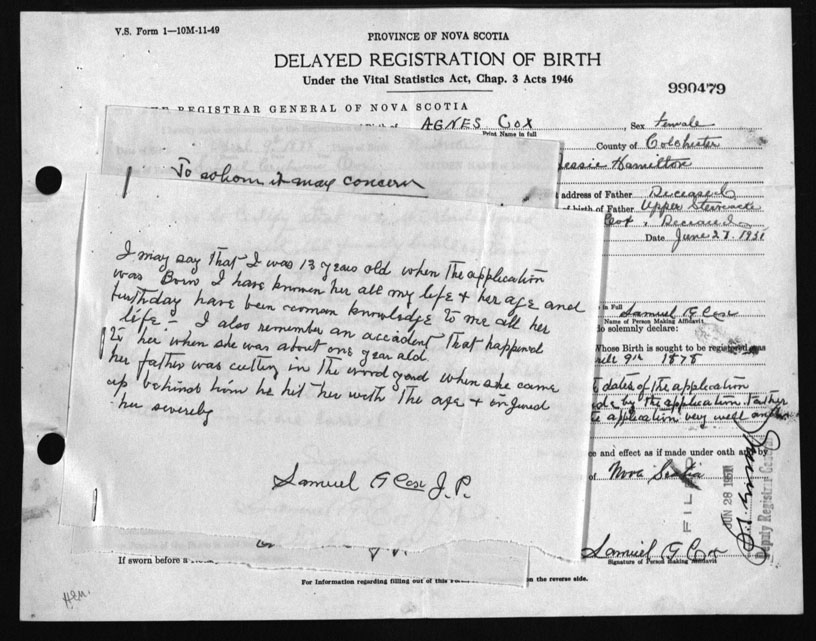 V.S. Form 1—10M-11-49
PROVINCE OF NOVA SCOTIA
DELAYED REGISTRATION OF BIRTH
Under the Vital Statistics Act, Chap. 3 Acts 1946
990479
REGISTRAR GENERAL OF NOVA SCOTIA
AGNES COX, Sex Female
Print Name in full
County of Colchester
Hamilton
address of Father Deceased
birth of Father Upper
Cox, Deceased
Date June 27, 1951
To whom it may concern
I may say that I was 13 years old when the application
was Born I have known her all my life & her age and
birthday have been common knowledge to me all her
life. - I also remember an accident that happened
to her when she was about one year old
her father was cutting in the wood yard when she came
up behind him he hit her with the axe & injured
her severely
Samuel G Cox J.P.
in Full Samuel G Cox
Name of Person Making Affidavit
do solemnly declare:
Whose Birth is sought to be registered was
9th 1878
dates of the application
by the application Father
application very well
and effect as if made under oath and by
of Nova Scotia
FILED
JUN 28 1951
Deputy Registrar General
Samuel G Cox
Signature of Person Making Affidavit
If sworn before a
For Information regarding filling out of this
on the reverse side.